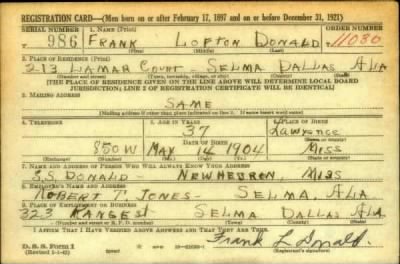 REGISTRATION CARD—(Men born on or after February 17, 1897 and on or before December 31, 1921)
SERIAL NUMBER 1. NAME (Print) ORDER NUMBER
986 FRANK LOFTON DONALD 11080
(First) (Middle) (Last)
2. PLACE OF RESIDENCE (Print)
213 LAMAR COURT - SELMA DALLAS ALA
(Number and street) (Town, township, village, or city) (County) (State)
[THE PLACE OF RESIDENCE GIVEN ON THE LINE ABOVE WILL DETERMINE LOCAL BOARD
JURISDICTION; LINE 2 OF REGISTRATION CERTIFICATE WILL BE IDENTICAL]
3. MAILING ADDRESS
SAME
[Mailing address if other than place indicated on line 2. If same insert word same]
4. TELEPHONE 5. AGE IN YEARS 6. PLACE OF BIRTH
37 Lawrence
DATE OF BIRTH (Town or county)
850W MAY 14 1904 MISS
(Exchange) (Number) (Mo.) (Day) (Yr.) (State or country)
7. NAME AND ADDRESS OF PERSON WHO WILL ALWAYS KNOW YOUR ADDRESS
S.S. DONALD - NEWHEBRON, MISS
8. EMPLOYER'S NAME AND ADDRESS
ROBERT T. JONES - SELMA, ALA
9. PLACE OF EMPLOYMENT OR BUSINESS
323 SELMA DALLAS ALA
(Number and street or R. F. D. number) (Town) (County) (State)
I AFFIRM THAT I HAVE VERIFIED ABOVE ANSWERS AND THAT THEY ARE TRUE.
D. S. S. Form 1 Frank L Donald
(Revised 1-1-42) (Registrant's signature)